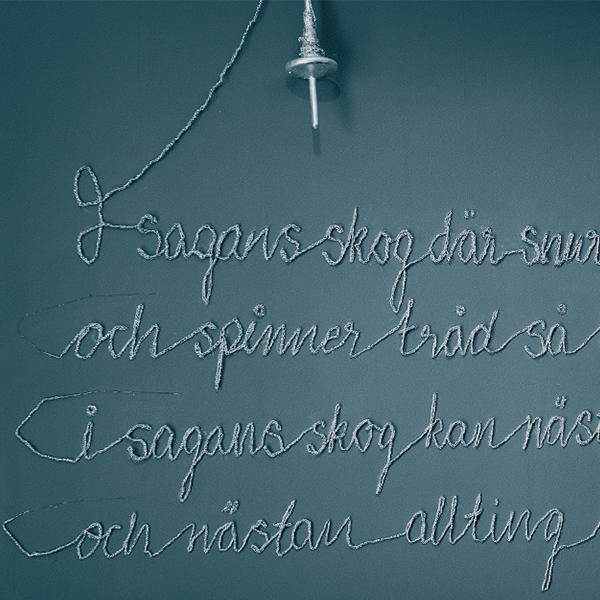 I sagans skog där snur
och spinner tråd så
i sagans skog kan näst
och nästan allting